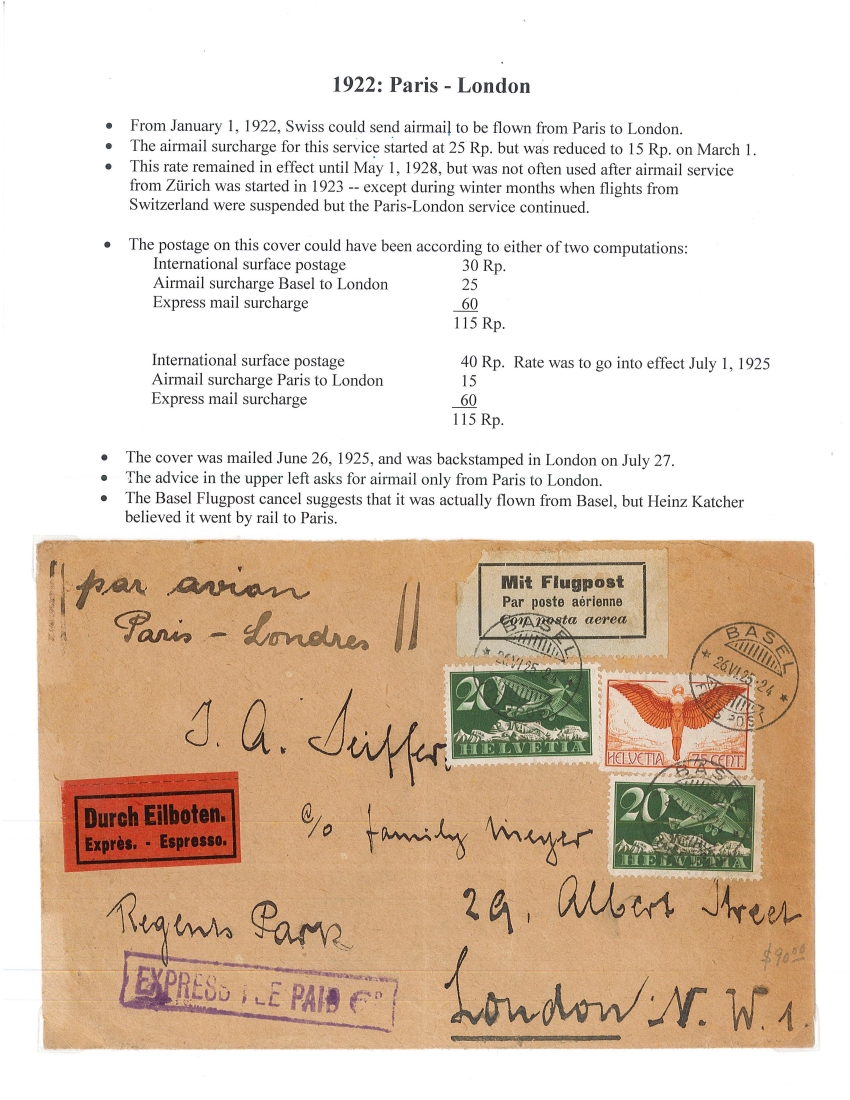 1922: Paris - London
• From January 1, 1922, Swiss could send airmail to be flown from Paris to London.
• The airmail surcharge for this service started at 25 Rp. but was reduced to 15 Rp. on March 1.
• This rate remained in effect until May 1, 1928, but was not often used after airmail service
from Zürich was started in 1923 -- except during winter months when flights from
Switzerland were suspended but the Paris-London service continued.
• The postage on this cover could have been according to either of two computations:
International surface postage 30 Rp.
Airmail surcharge Basel to London 25
Express mail surcharge 60
115 Rp.
International surface postage 40 Rp. Rate was to go into effect July 1, 1925
Airmail surcharge Paris to London 15
Express mail surcharge 60
115 Rp.
• The cover was mailed June 26, 1925, and was backstamped in London on July 27.
• The advice in the upper left asks for airmail only from Paris to London.
• The Basel Flugpost cancel suggests that it was actually flown from Basel, but Heinz Katcher
believed it went by rail to Paris.
par avion
Paris - Londres
Mit Flugpost
Par poste aérienne
Con posta aerea
BASEL
26.VI.25-24
BASEL
26.VI.25-24
FLUGPOST
20
HELVETIA
HELVETIA 75 CENT.
BASEL
20
HELVETIA
J. A. Seiffer
Durch Eilboten.
Exprès. - Espresso.
c/o family Meyer
29, Albert Street
Regents Park
$90.00
EXPRESS FEE PAID 6D
London N. W. 1.